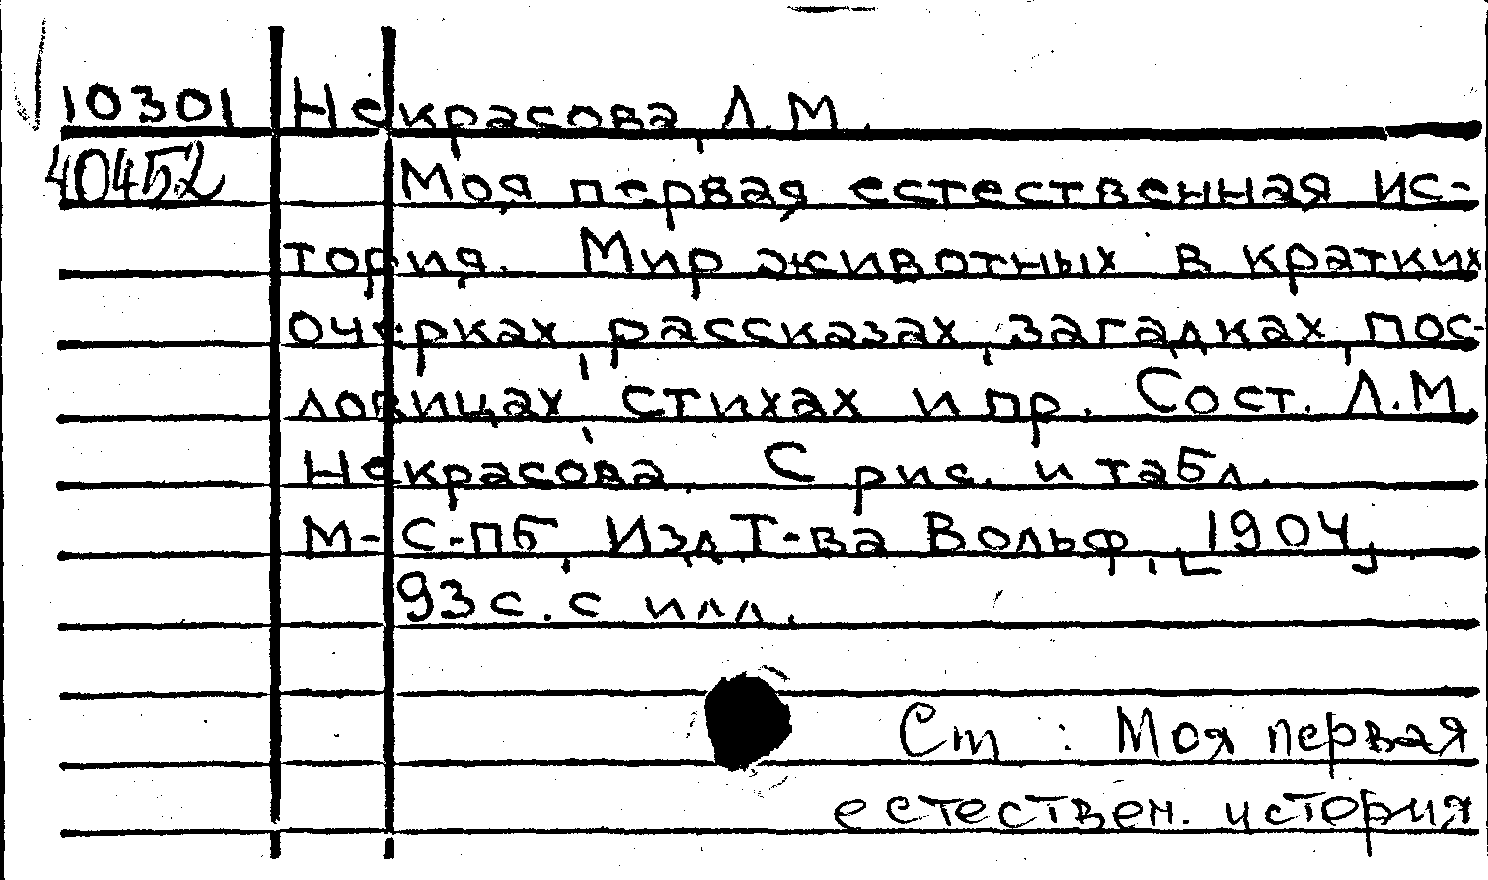 10301 Некрасова, Л.М.
40452 Моя первая естественная ис-
тория. Мир животных в кратких
очерках, рассказах, загадках, пос-
ловицах, стихах и пр. Сост. Л.М.
Некрасова. С рис. и табл.
М-С-ПБ, Изд. Т-ва Вольф, [1904]
93 с. с илл.
Ст : Моя первая
естествен. история